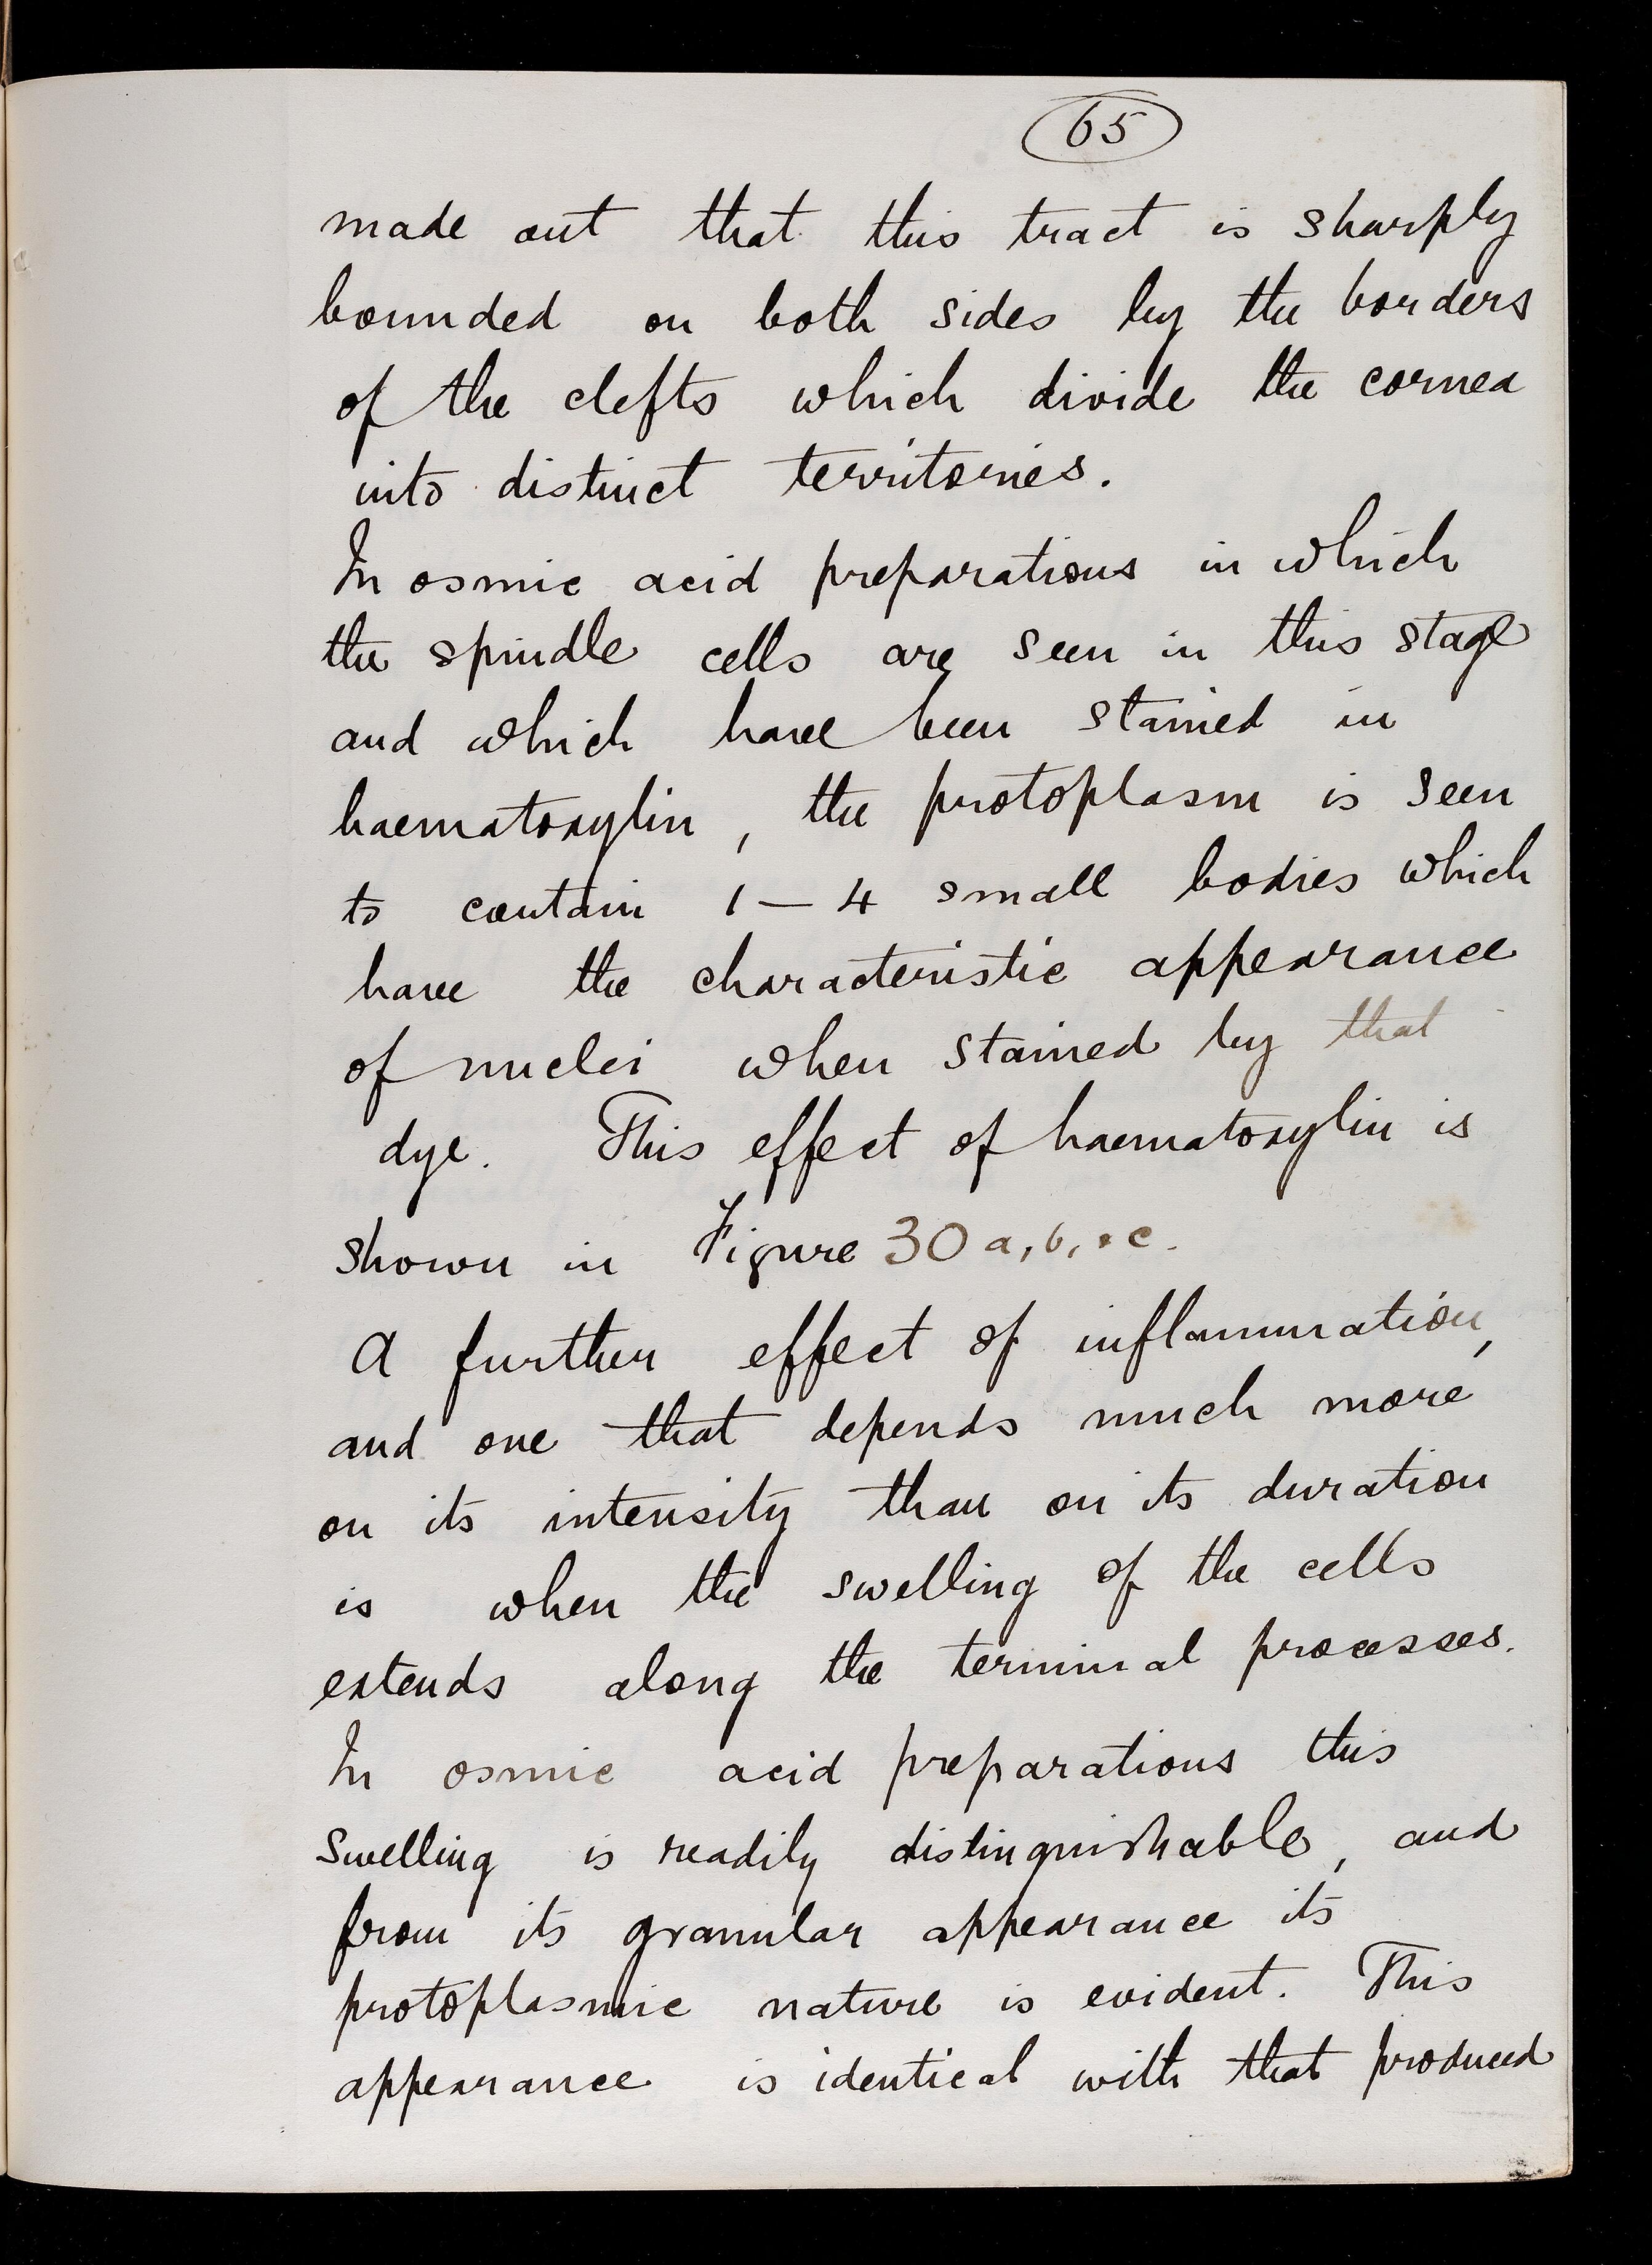 65
made out that this tract is sharply
bounded on both sides by the borders
of the clefts which divide the cornea
into distinct territories.
In osmic acid preparations in which
the spindle cells are seen in this stage
and which have been stained in
haematoxylin, the protoplasm is seen
to contain 1 — 4 small bodies which
have the characteristic appearance
of nuclei when stained by that
dye. This effect of haematoxylin is
shown in Figure 30 a, b, & c.
A further effect of inflammation,
and one that depends much more
on its intensity than on its duration
is when the swelling of the cells
extends along the terminal processes.
In osmic acid preparations this
swelling is readily distinguishable, and
from its granular appearance its
protoplasmic nature is evident. This
appearance is identical with that produced